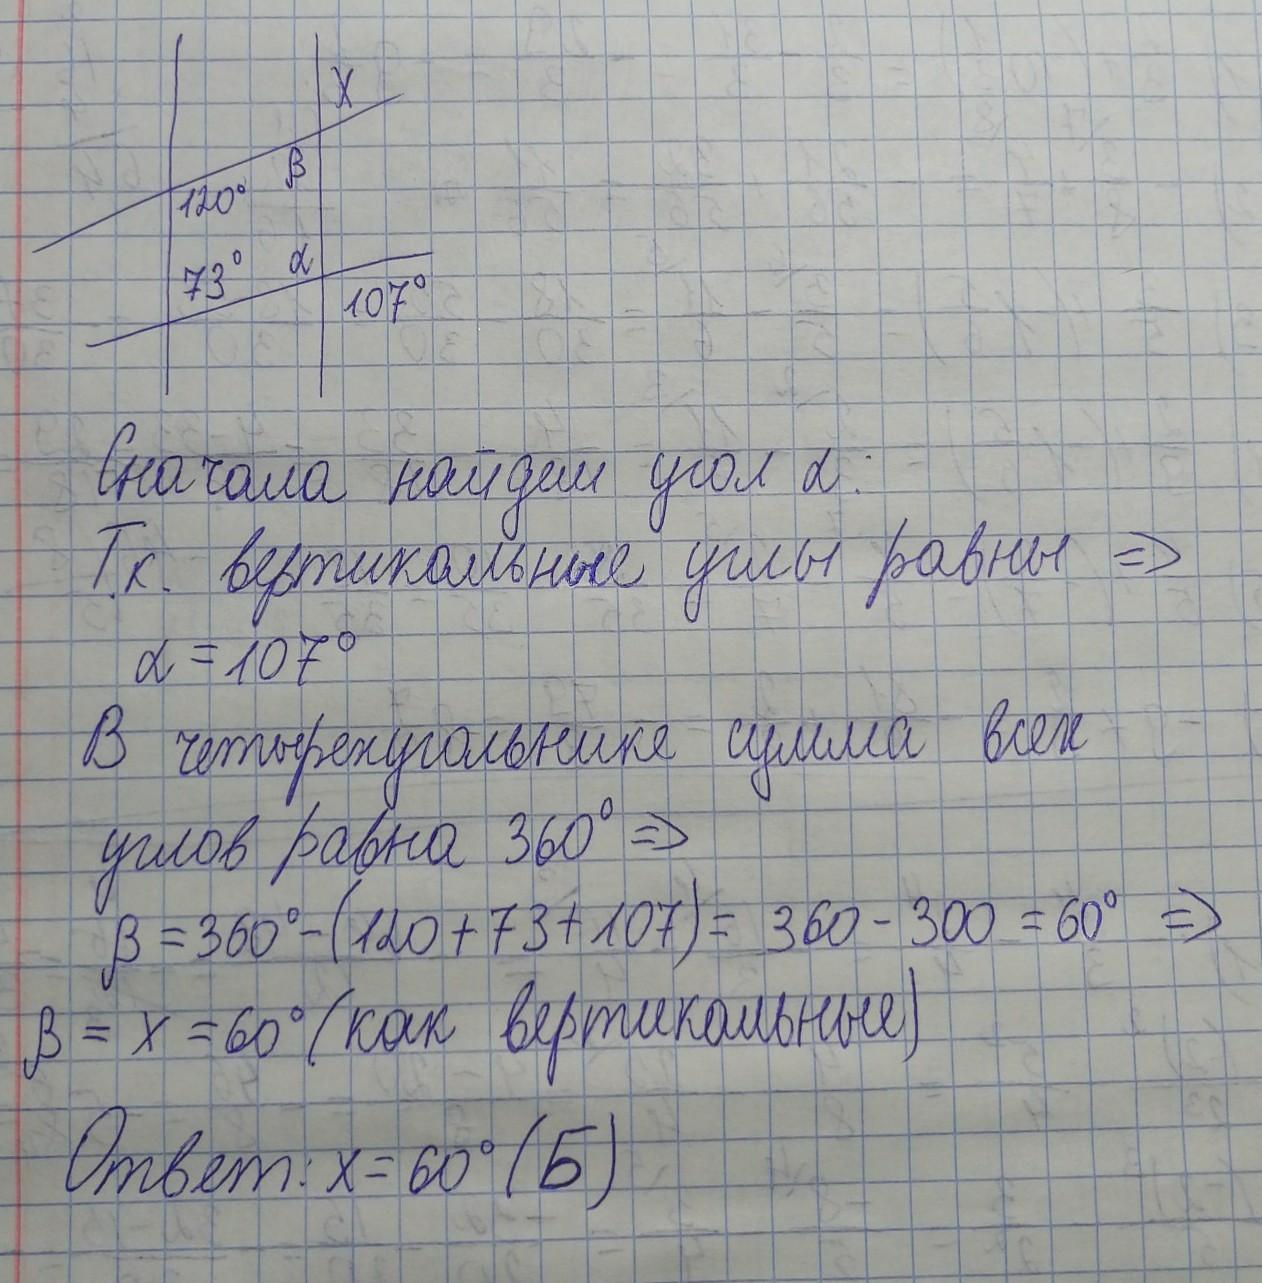 x
β
120°
α
73°
107°
Сначала найдем угол α:
Т.к. вертикальные углы равны =>
α = 107°
В четырехугольнике сумма всех
углов равна 360° =>
β = 360° - (120 + 73 + 107) = 360 - 300 = 60° =>
β = x = 60° (как вертикальные)
Ответ: x = 60° (Б)